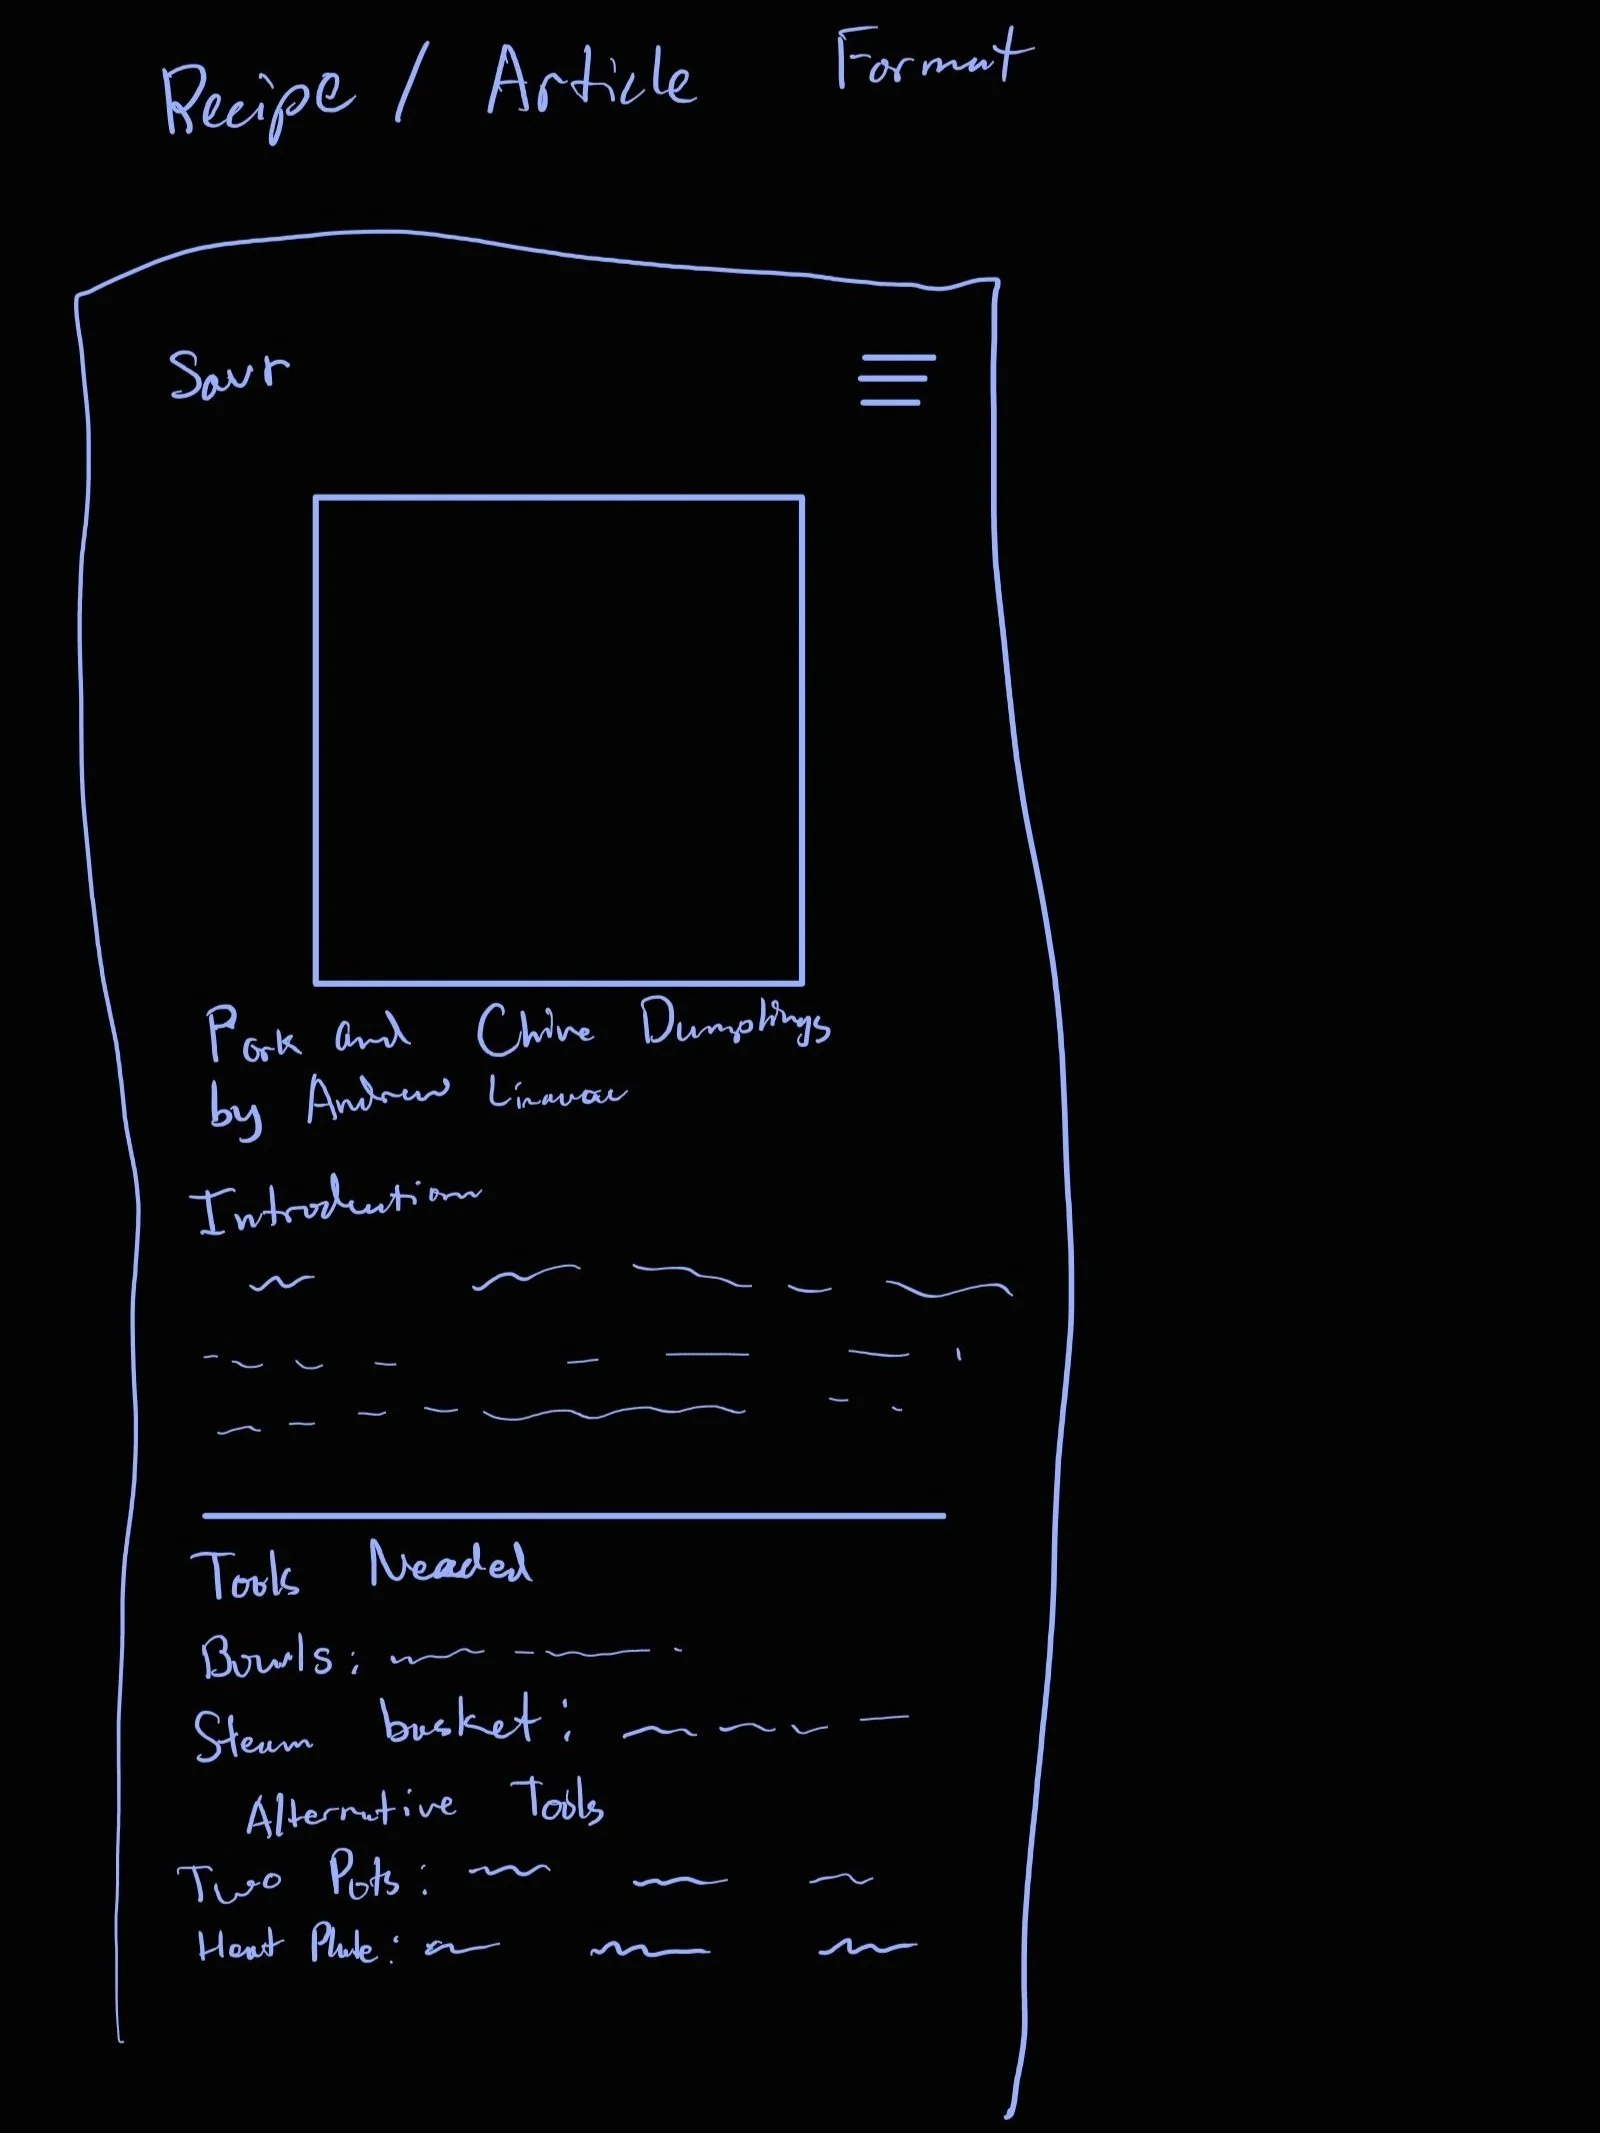 Recipe / Article Format
Savr
Pork and Chive Dumplings
by Andrew
Introduction
Tools Needed
Bowls:
Steam basket:
Alternative Tools
Two Pots:
Heat Plate: